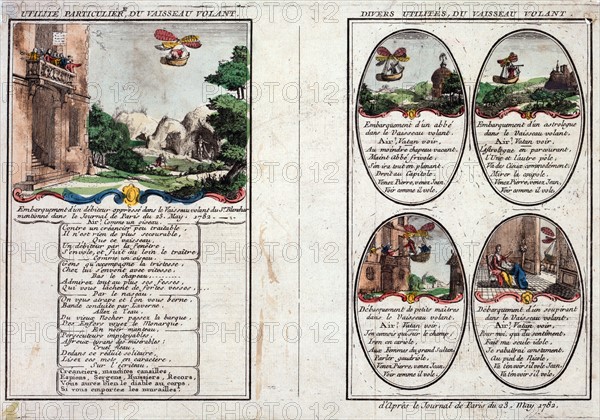 UTILITÉ PARTICULIERE, DU VAISSEAU VOLANT.
Embarquement d'un débiteur oppressé dans le Vaisseau volant du Sr. Blanchar
mentionné dans le Journal de Paris du 23. May. 1782.
Air: Comme un oiseau.
Contre un créancier peu traitable
Il n'est rien de plus secourable,
Que ce vaisseau.
Un débiteur par la fenêtre
S'envole, et fuit au loin le traître
Comme un oiseau.
Gens qu'accompagne la tristesse
Chez lui s'envont avec vitesse.
Bas le chapeau
Admirez tout au plus ses fosses
Qui vous lachent de fortes vesses
Par le naseau.
On vous attrape et l'on vous berne
Bande conduite par Laverne.
Allez à l'eau.
Du vieux Nocher passez la barque
Des Enfers voyez le Monarque
En noir manteau.
Persécuteurs impitoyables,
Affreux tirans des misérables
Cruel fléau
Dedans ce réduit solitaire,
Lisez ces mots en caractere
Sur l'écriteau.
Créanciers, maudites canailles
Espions, Sergens, Huissiers, Recors,
Vous aurez bien le diable au corps.
Si vous emportez les murailles.
DIVERS UTILITÉS, DU VAISSEAU VOLANT.
Embarquement d'un abbé
dans le Vaisseau volant.
Air: Vatan voir.
Au moindre chapeau vacant,
Maint Abbé frivole.
S'en ira tout en planant
Droit au Capitole.
Venez Pierre, venez Jean.
Voir comme il vole.
Embarquement d'un astrologue
dans le Vaisseau volant.
Air: Vatan voir.
L'Astrologue en parcourant
L'Une et l'autre pôle,
Va des Cieux commodément
Mirer la coupole.
Venez Pierre, venez Jean,
Voir comme il vole.
Débarquement de petits maitres
dans le Vaisseau volant.
Air: Vatan voir.
J'en connois qui sur le champ,
Iront en cariole,
Aux Femmes du grand Sultan
Parler gaudriole.
Venez Pierre, venez Jean,
Voir comme il vole.
Débarquement d'un soupirant
dans le Vaisseau volant.
Air: Vatan voir.
Pour moi, qui du sentiment,
Fait ma seule idole,
Je rabattrai constament
Au pied de Nicole
Va t'en voir s'il vole Jean,
Va t'en voir s'il vole.
d'Après le Journal de Paris du 23. May 1782.